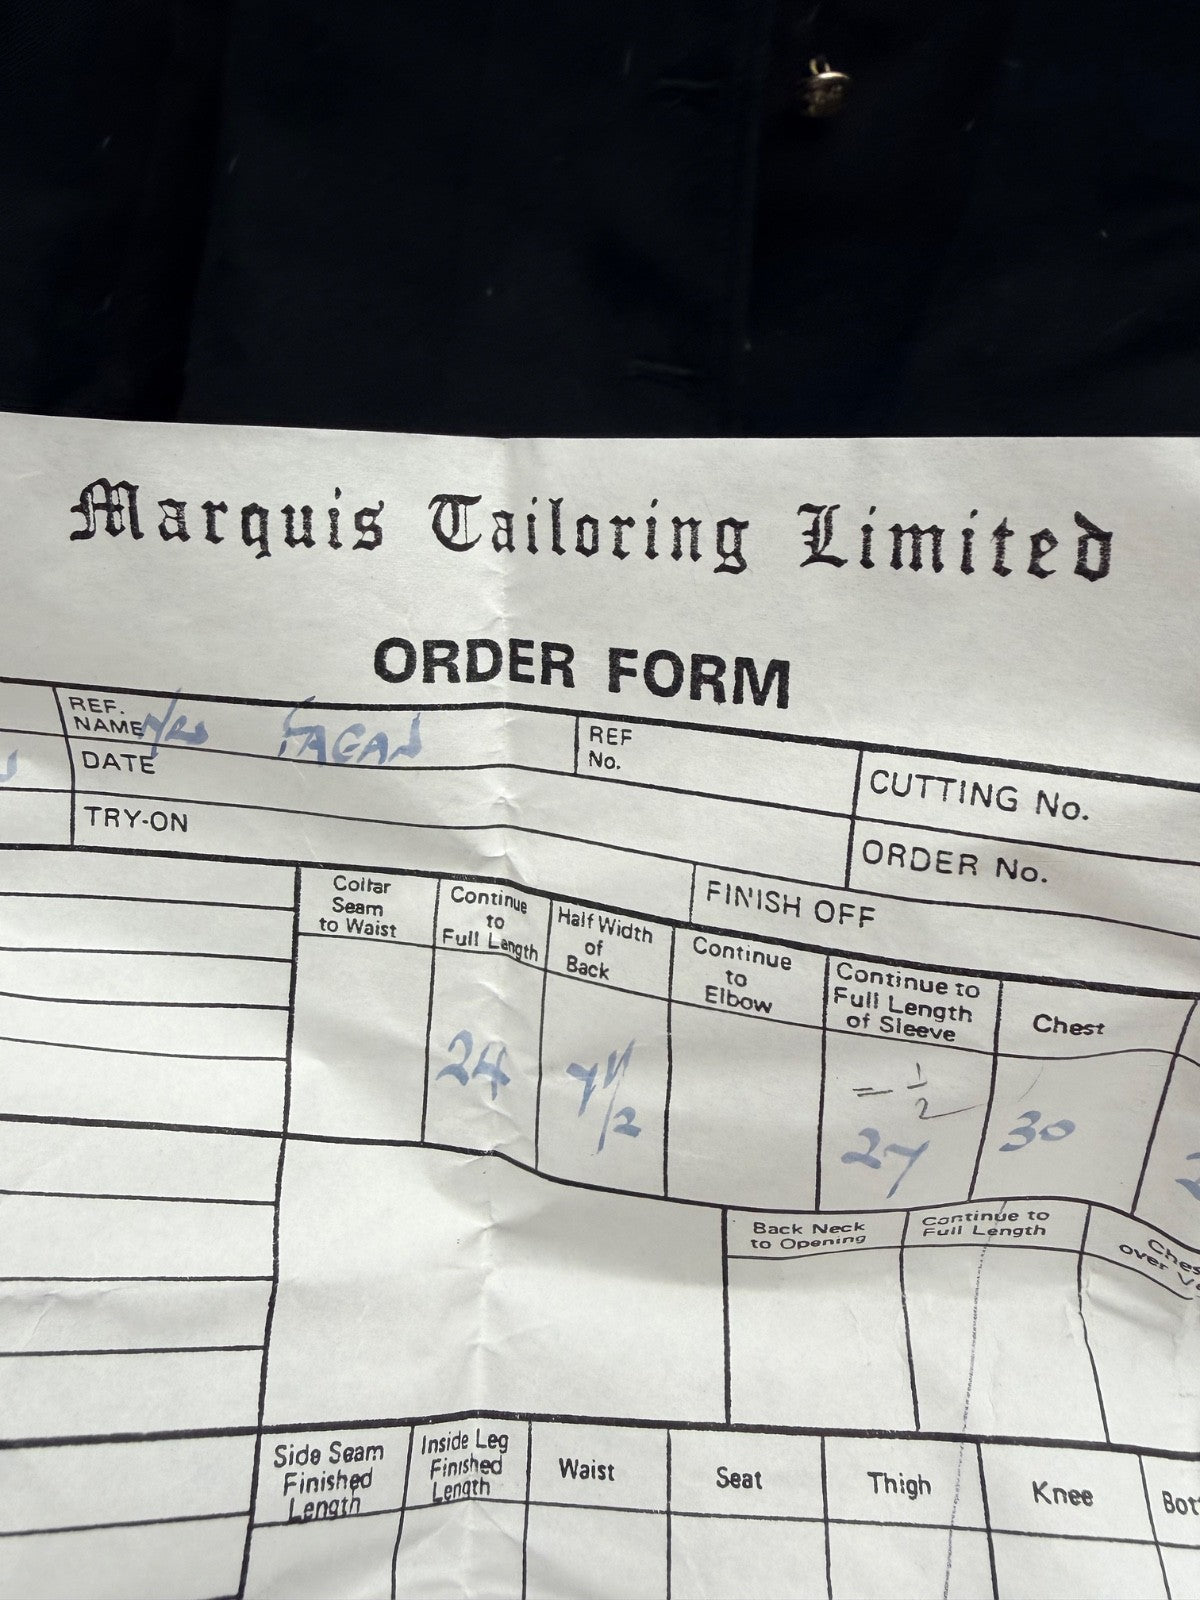 Marquis Tailoring Limited
ORDER FORM
REF. NAME Mrs FAGAN
REF No.
CUTTING No.
DATE
ORDER No.
TRY-ON
FINISH OFF
Collar Seam to Waist
Continue to Full Length
Half Width of Back
Continue to Elbow
Continue to Full Length of Sleeve
Chest
24
7 1/2
= 1/2
27
30
Back Neck to Opening
Continue to Full Length
over
Side Seam Finished Length
Inside Leg Finished Length
Waist
Seat
Thigh
Knee